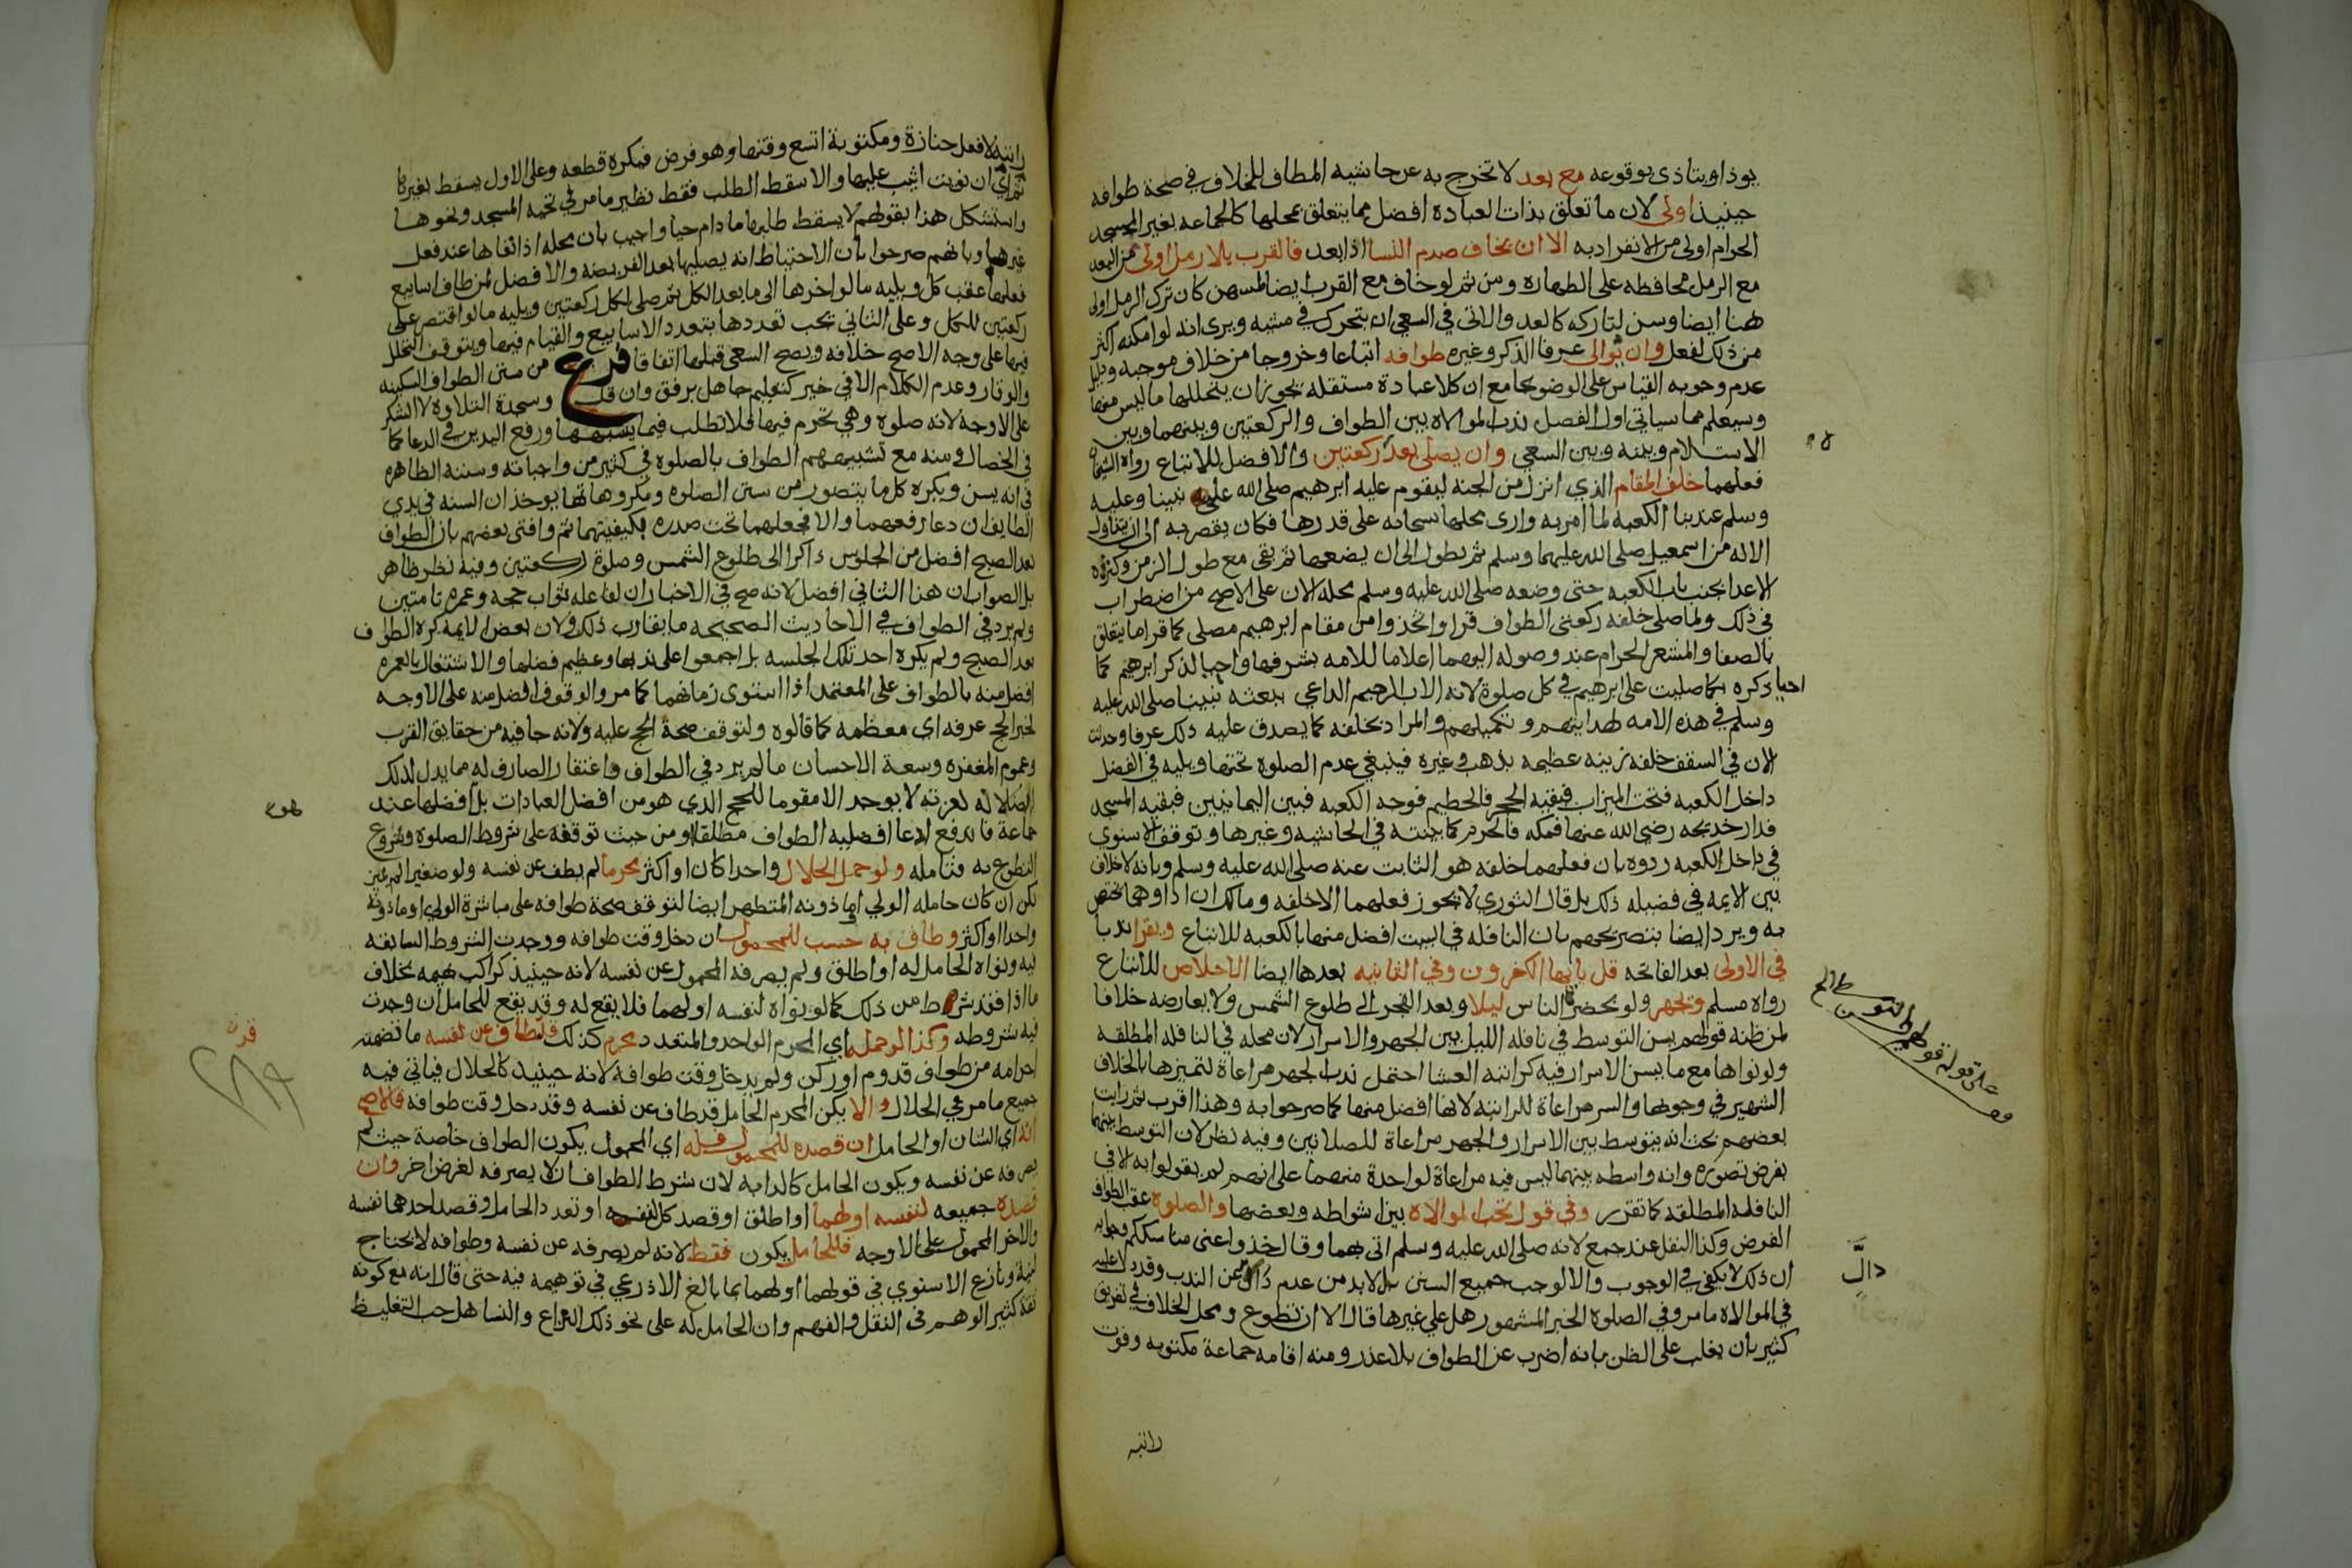 يوذ او يتاذى بوقوعه مع بعد لا تخرج به عن حاشيه المطاف للخلاف في صحة طوافه
حينيذ اولى لان ما تعلق بذات العبادة افضل مما يتعلق بمحلها كالجماعه بغير المسجد
الحرام اولى من الانفراد به الا ان يخاف صدم النسا اذا بعد فالقرب بلا رمل اولى من البعد
مع الرمل محافظه على الطهاره ومن ثم لو خاف مع القرب ايضا لمسهن كان ترك الرمل اولى
هنا ايضا وسن لتاركه كالعد والاتى في السعي ان يتحرك في مشيه ويرى انه لو امكنه اكثر
من ذلك لفعل وان يوالى عرفا الذكر وغيره طوافه اتباعا وخروجا من خلاف موجبه ودليل
عدم وجوبه القياس على الوضو بجامع ان كلا عبادة مستقله يجوز ان يتخللها ما ليس منها
وسيعلم مما سياتي اول الفصل ندب الموالاه بين الطواف والركعتين وبينهما وبين
الاستلام وبينه وبين السعي وان يصلى بعده ركعتين والافضل للاتباع رواه الشيخان
فعلهما خلف المقام الذي انزل من الجنه ليقوم عليه ابرهيم صلى الله على نبينا وعليه
وسلم عند بنا الكعبه لما امر به وارى محلها بسحابه على قدرها فكان يقصر به الى ان يتناول
الاله من اسمعيل صلى الله عليهما وسلم ثم يطول الى ان يضعها ثم بقى مع طول الزمن وكثرة
الاعدا بجنب باب الكعبه حتى وضعه صلى الله عليه وسلم بمحله الان على الاصح من اضطراب
في ذلك ولما صلى خلفه ركعتى الطواف قرا واتخذوا من مقام ابرهيم مصلى كما قرا ما يتعلق
بالصفا والمشعر الحرام عند وصوله اليهما اعلاما للامه بشرفها واحيا لذكر ابرهيم كما
احيا ذكره بكما صليت على ابرهيم في كل صلوة لانه الاب الرحيم الداعي ببعثه نبينا صلى الله عليه
وسلم في هذه الامه لهدايتهم وتكميلهم والمراد بخلفه كما يصدق عليه ذلك عرفا وحدث
الان في السقف خلفه زينه عظيمه بذهب وغيره فينبغي عدم الصلوة تحتها ويليه في الفضل
داخل الكعبه فتحت الميزاب فبقيه الحجر فالحطيم فوجه الكعبه فبين اليمانيين فبقيه المسجد
فدار خديجه رضى الله عنها فمكه فالحرم كما بينته في الحاشيه وغيرها وتوقف الاسنوي
في داخل الكعبه ردوه بان فعلهما خلفه هو الثابت عنه صلى الله عليه وسلم وبانه لا خلاف
بين الايمه في فضيله ذلك بل قال الثوري لا يجوز فعلهما الا خلفه ومالك ان اداوهما يختص
به ويرد ايضا بتصريحهم بان النافله في البيت افضل منها بالكعبه للاتباع ويقرا ندبا
في الاولى بعد الفاتحه قل يايها الكفرون وفي الثانيه بعدها ايضا الاخلاص للاتباع
رواه مسلم ويجهر ولو بحضرة الناس ليلا وبعد الفجر الى طلوع الشمس ولا يعارضه خلافا
لمن ظنه قولهم يسن التوسط في نافله الليل بين الجهر والاسرار لان محله في النافله المطلقه
ولو نواها مع ما يسن الاسرار فيه كراتبه العشا احتمل ندب الجهر مراعاة لتميزها بالخلاف
الشهير في وجوبها والسر مراعاة للراتبه لانها افضل منها كما صرحوا به وهذا اقرب ثم رايت
بعضهم بحث انه يتوسط بين الاسرار والجهر مراعاة للصلاتين وفيه نظر لان التوسط بينهما
بفرض تصوره وانه واسطه بينهما ليس فيه مراعاة لواحدة منهما على انهم لم يقولوا به الا في
النافله المطلقه كما تقرر وفي قول تجب الموالاه بين اشواطه وبعضها والصلوه عقب الطواف
الفرض وكذا النفل عند جمع لانه صلى الله عليه وسلم اتى بهما وقال خذوا عنى مناسككم وجوابه
ان ذلك لا يكفي في الوجوب والا لوجب جميع السنن بل لا بد من عدم دال عن الندب وقد دل عليه
في الموالاه ما مر وفي الصلوة الخبر المشهور هل علي غيرها قال لا الا ان تطوع ومحل الخلاف في تفريق
كثير بان يغلب على الظن بانه اضرب عن الطواف بلا عذر ومنه اقامه جماعة مكتوبه وفوت
راتبه
على قوله قولهم يسن التوسط الخ
دالٍّ
راتبه لا فعل جنازة ومكتوبة اتسع وقتها وهو فرض فيكره قطعه وعلى الاول يسقط بغيرها
ثم اي ان نويت اثيب عليها والا سقط الطلب فقط نظير ما مر في تحيه المسجد ونحوها
واستشكل هذا بقولهم لا يسقط طلبها ما دام حيا واجيب بان محله اذا نفاها عند فعل
غيرها وبانهم صرحوا بان الاحتياط انه يصليها بعد الفريضه والافضل لمن طاف اسابيع
فعلها عقب كل ويليه ما لو اخرها الى ما بعد الكل ثم صلى لكل ركعتين ويليه ما لو اقتصر على
ركعتين للكل وعلى الثاني يجب تعددها بتعدد الاسابيع والقيام فيها ويتوقف التحلل
فيها على وجه الاصح خلافه ويصح السعي قبلها اتفاقا فرع من سنن الطواف السكينه
والوقار وعدم الكلام الا في خير كتعليم جاهل برفق وان قل وسجدة التلاوه لا الشكر
على الاوجه لانه صلوة وهي تحرم فيها فلا تطلب فيما يشبهها ورفع اليدين في الدعا كما
في الخصال ومنه مع تشبيههم الطواف بالصلوه في كثير من واجباته وسننه الظاهره
في انه يسن ويكره كل ما يتصور من سنن الصلوه ومكروهاتها يوخذ ان السنه في يدي
الطايف ان دعا رفعهما والا فجعلهما تحت صدره بكيفيتهما ثم وافتى بعضهم بان الطواف
بعد الصبح افضل من الجلوس ذاكرا الى طلوع الشمس وصلوة ركعتين وفيه نظر ظاهر
بل الصواب ان هذا الثاني افضل لانه صح في الاخبار ان لفاعله ثواب حجه وعمره تامتين
ولم يرد في الطواف في الاحاديث الصحيحه ما يقارب ذلك ولان بعض الايمه كره الطواف
بعد الصبح ولم يكره احد تلك الجلسه بل اجمعوا على ندبها وعظيم فضلها والاشتغال بالعمره
افضل منه بالطواف على المعتمد اذا استوى زمانهما كما مر والوقوف افضل منه على الاوجه
لخبر الحج عرفه اي معظمه كما قالوه ولتوقف صحة الحج عليه ولانه جا فيه من حقايق القرب
وعموم المغفره وسعة الاحسان ما لم يرد في الطواف واغتفار الصارف له مما يدل لذلك
لانه لعزته لا يوجد الا مقوما للحج الذي هو من افضل العبادات بل افضلها عند
جماعة فاندفع ادعا افضليه الطواف مطلقا او من حيث توقفه على شروط الصلوه وشروع
التطوع به فتامله ولو حمل الحلال واحدا كان او اكثر محرما لم يطف عن نفسه ولو صغيرا لم يميز
لكن ان كان حامله الولي او ماذونه المتطهر ايضا لتوقف صحة طوافه على مباشرة الولي او ماذونه
واحدا او اكثر وطاف به حسب للمحمول ان دخل وقت طوافه ووجدت الشروط السابقه
فيه ونواه الحامل له او اطلق ولم يصرفه المحمول عن نفسه لانه حينيذ كراكب بهيمه بخلاف
ما اذا فقد شرط من ذلك كما لو نواه لنفسه او لهما فلا يقع له وقد يقع للحامل ان وجدت
فيه شروطه وكذا لو حمله اي المحرم الواحد والمتعدد محرم كذلك قد طاف عن نفسه ما تضمنه
احرامه من طواف قدوم او ركن ولم يدخل وقت طوافه لانه حينيذ كالحلال فياتي فيه
جميع ما مر في الحلال والا يكن المحرم الحامل قد طاف عن نفسه وقد دخل وقت طوافه فالاصح
انه اي الشان او الحامل ان قصده للمحمول فله اي المحمول يكون الطواف خاصة حيث لم
يصرفه عن نفسه ويكون الحامل كالدابه لان شرط الطواف ان لا يصرفه لغرض اخر وان
قصده جميعه لنفسه او لهما او اطلق او قصد كل نفسه او تعدد الحامل وقصد احدهما نفسه
والاخر المحمول على الاوجه فللحامل يكون فقط لانه لم يصرفه عن نفسه وطوافه لا يحتاج
لنية ونازع الاسنوي في قولهما او لهما بما بالغ الاذرعي في توهيمه فيه حتى قال انه مع كونه
نقله كثير الوهم في النقل والفهم وان الحامل له على نحو ذلك النزاع والتساهل حب التغليط